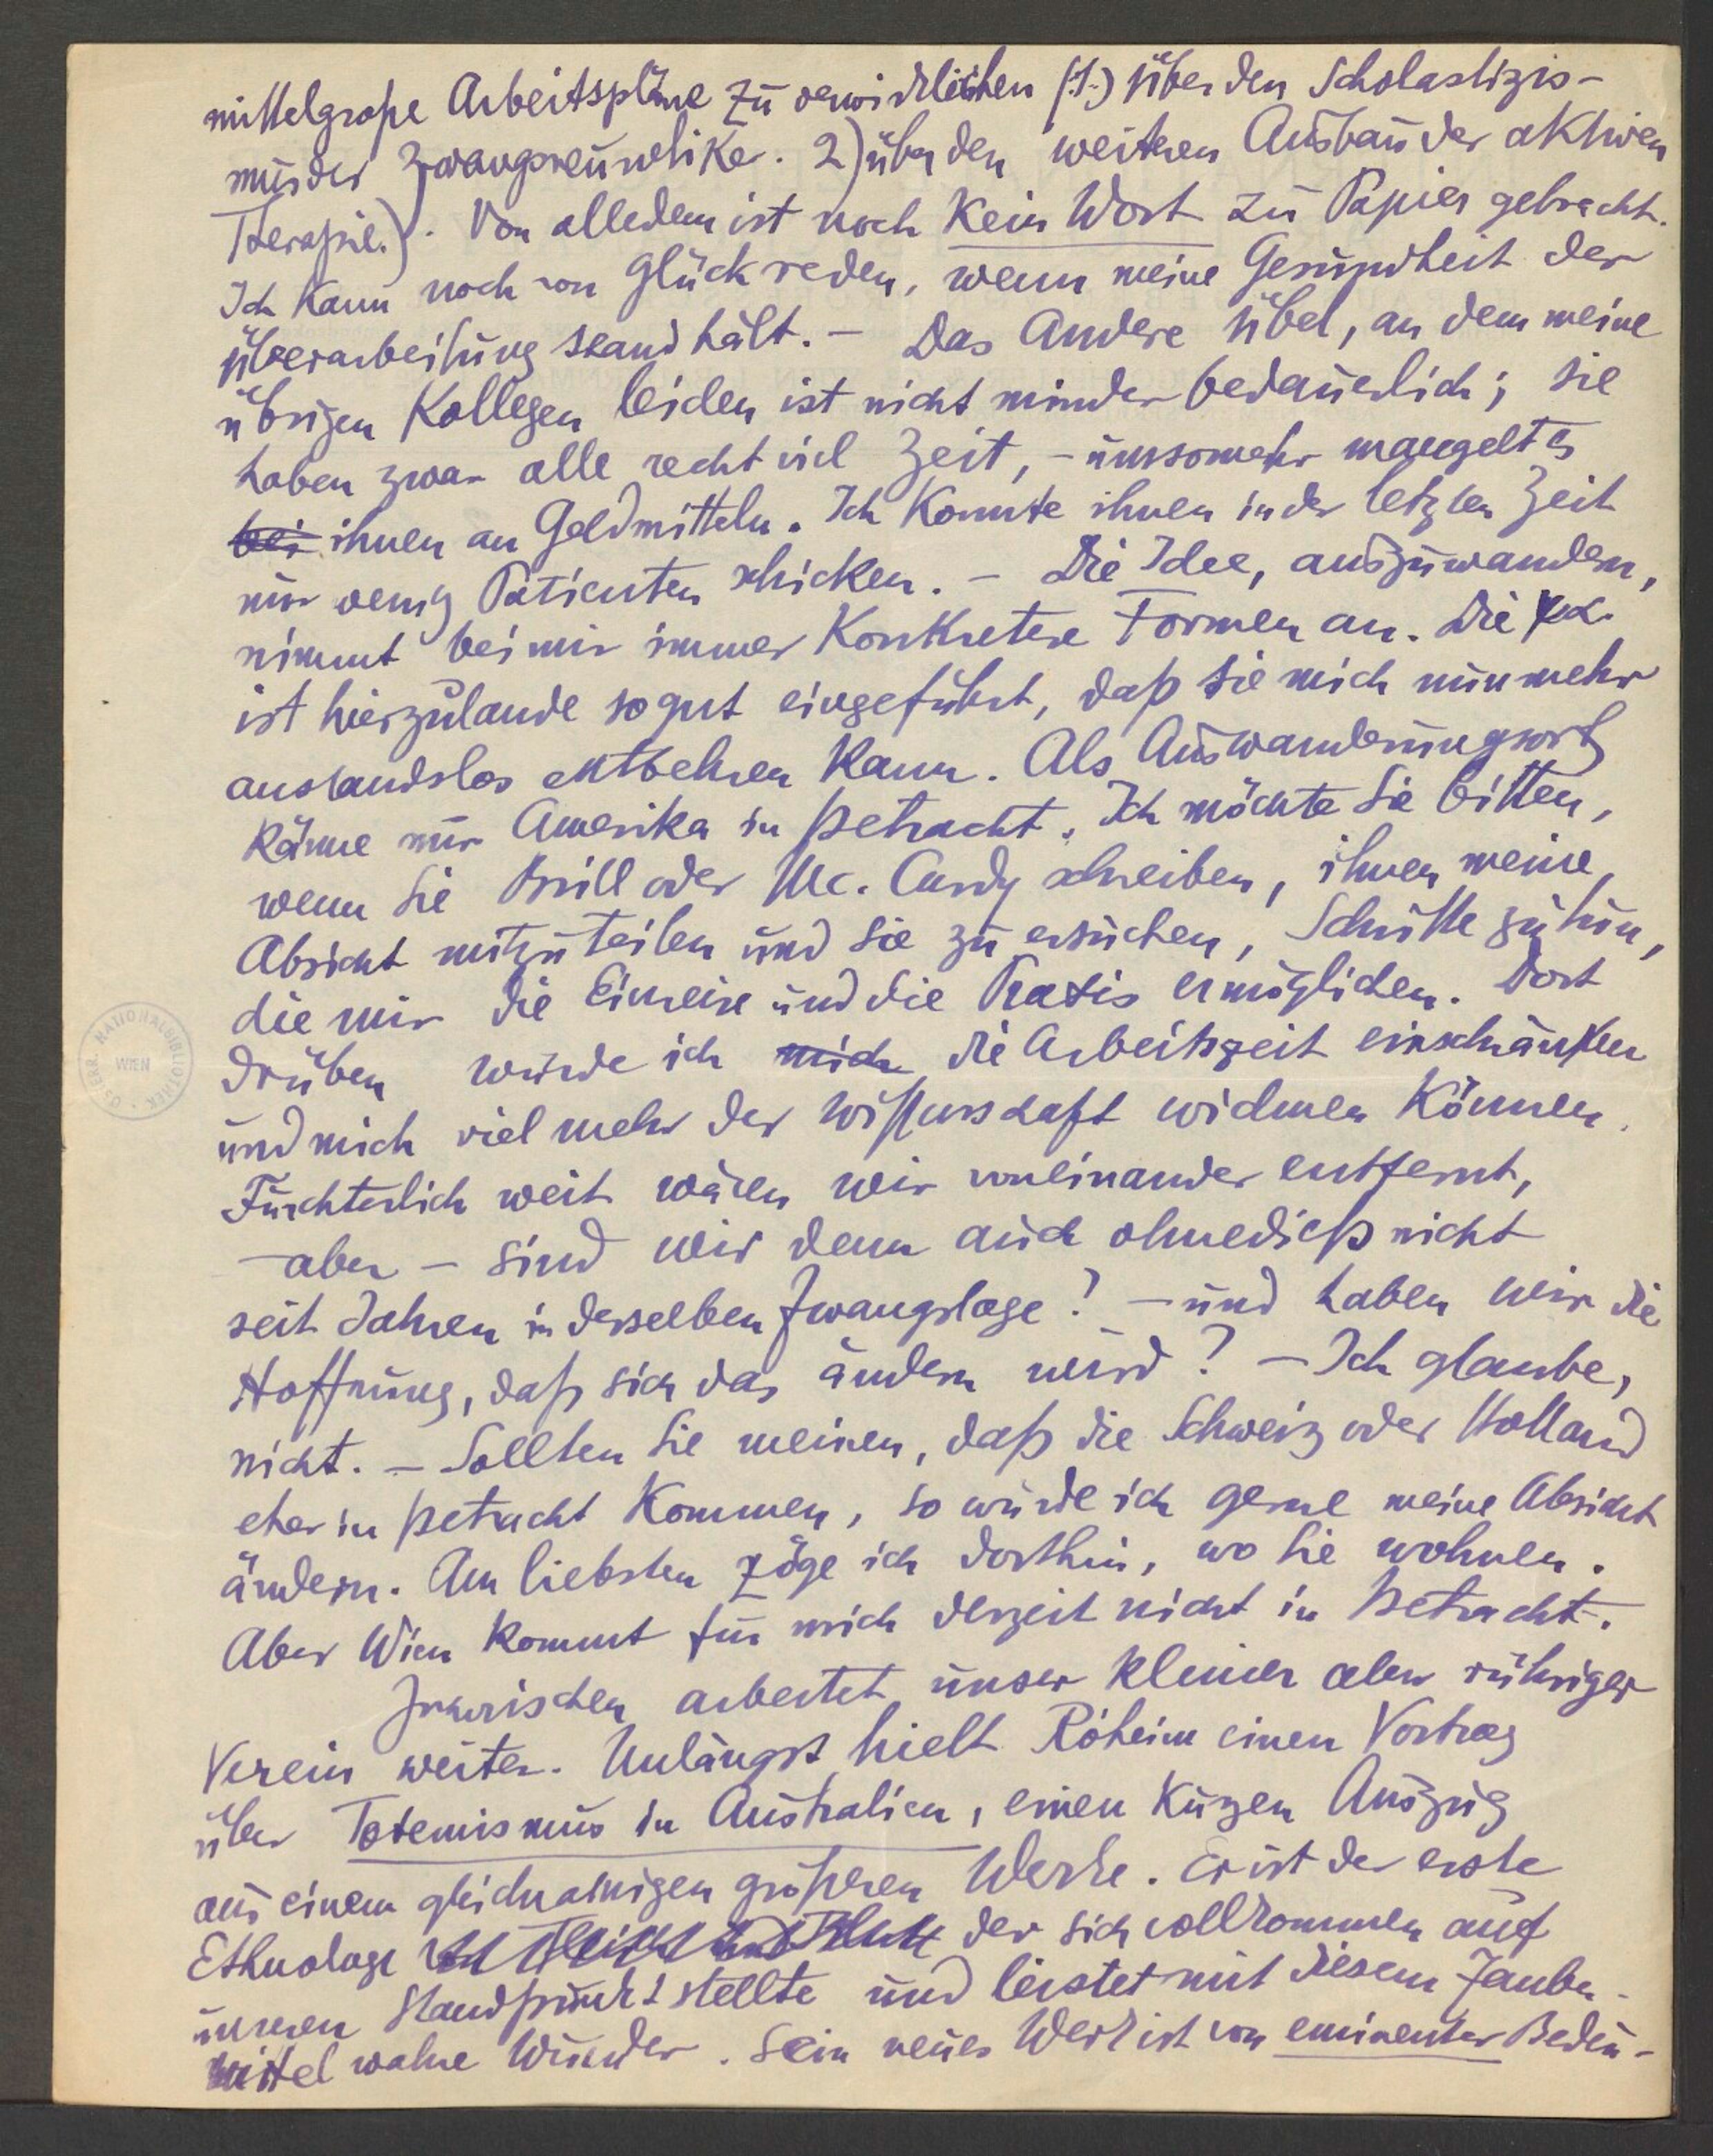 mittelgroße Arbeitspläne zu verwirklichen (1.) Über den Scholastizis-
mus der Zwangsneurotiker. 2) über den weiteren Ausbau der aktiven
Therapie.). Von alledem ist noch kein Wort zu Papier gebracht.
Ich kann noch von Glück reden, wenn meine Gesundheit der
Überarbeitung stand hält. – Das Andere Übel, an dem meine
übrigen Kollegen leiden ist nicht minder bedauerlich; sie
haben zwar alle recht viel Zeit, – umsomehr mangelt es
bei ihnen an Geldmitteln. Ich konnte ihnen in der letzten Zeit
nur wenig Patienten schicken. – Die Idee, auszuwandern,
nimmt bei mir immer konkretere Formen an. Die ψα.
ist hierzulande so gut eingeführt, daß sie mich nunmehr
anstandslos entbehren kann. Als Auswanderungsort
käme nur Amerika in Betracht. Ich möchte Sie bitten,
wenn Sie Brill oder Mc. Curdy schreiben, ihnen meine
Absicht mitzuteilen und sie zu ersuchen, Schritte zu tun,
die mir die Einreise und die Praxis ermöglichen. Dort
drüben würde ich mich die Arbeitszeit einschränken
und mich viel mehr der Wissenschaft widmen können.
Fürchterlich weit wären wir voneinander entfernt,
– aber – sind wir denn auch ohnedieß nicht
seit Jahren in derselben Zwangslage? – und haben wir die
Hoffnung, daß sich das ändern wird? – Ich glaube,
nicht. – Sollten Sie meinen, daß die Schweiz oder Holland
eher in Betracht kommen, so würde ich gerne meine Absicht
ändern. Am liebsten zöge ich dorthin, wo Sie wohnen.
Aber Wien kommt für mich derzeit nicht in Betracht.
Inzwischen arbeitet unser kleiner aber rühriger
Verein weiter. Unlängst hielt Róheim einen Vortrag
über Totemismus in Australien, einen kurzen Auszug
aus einem gleichnamigen größeren Werke. Er ist der erste
Ethnologe von Fleisch und Blut der sich vollkommen auf
unseren Standpunkt stellte und leistet mit diesem Zauber-
mittel wahre Wunder. Sein neues Werk ist von eminenter Bedeu-
ÖSTERR. NATIONALBIBLIOTHEK
WIEN